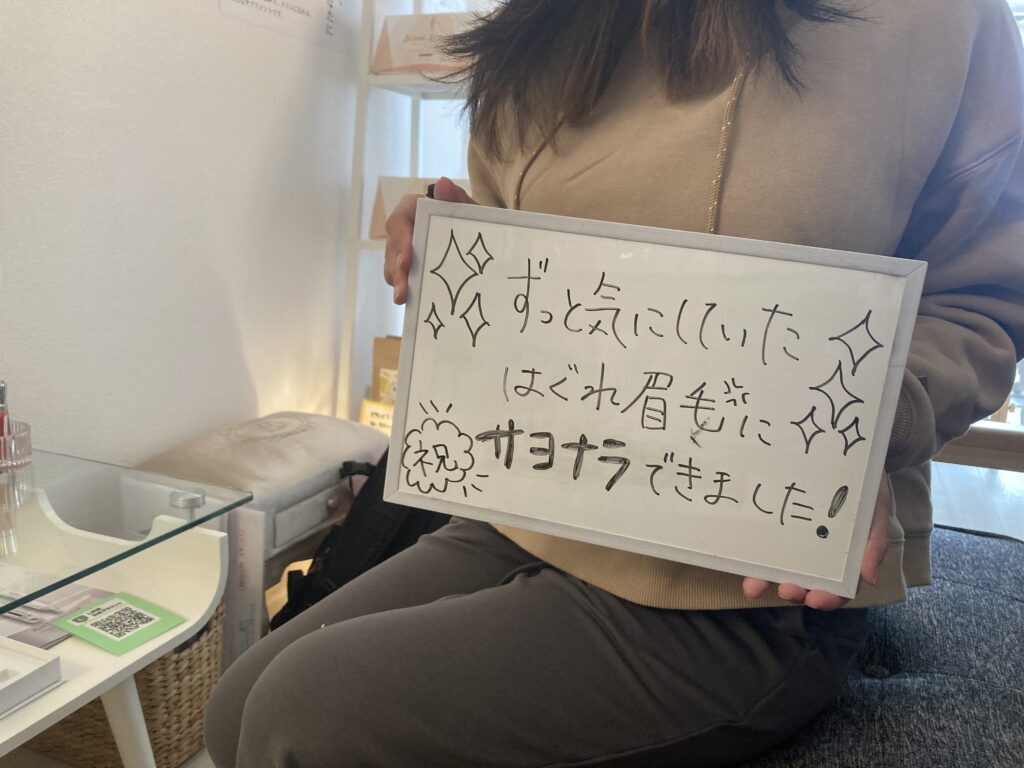 ずっと気にしていた
はぐれ眉毛に
祝 サヨナラできました!